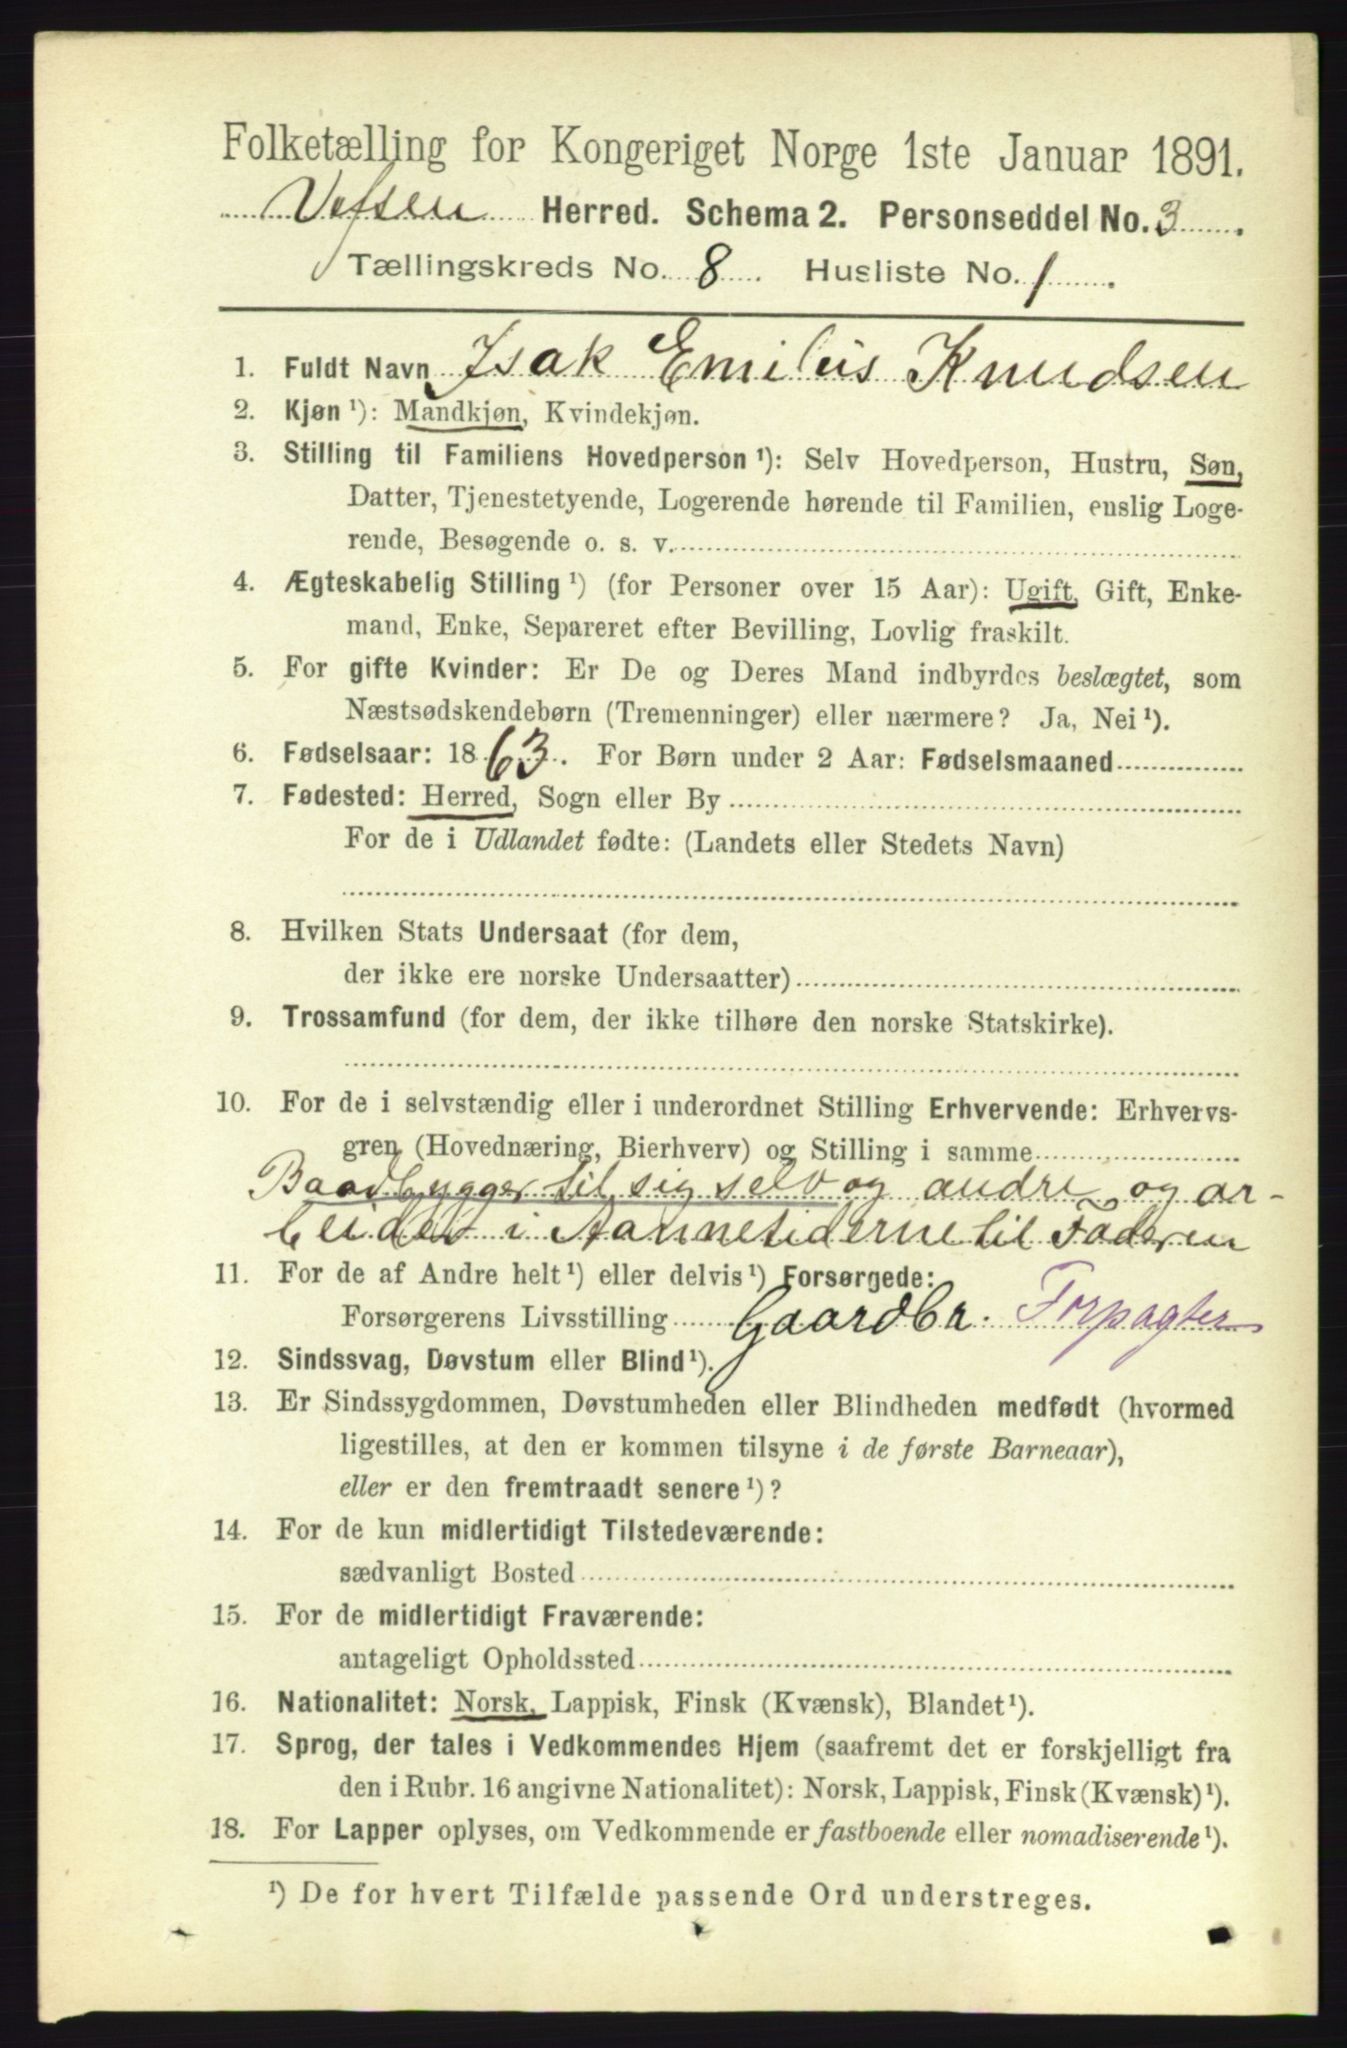 Folketælling for Kongeriget Norge 1ste Januar 1891.
Vefsen Herred. Schema 2. Personseddel No. 3
Tællingskreds No. 8 Husliste No. 1
1. Fuldt Navn Isak Emilius Knudsen
2. Kjøn ¹): Mandkjøn, Kvindekjøn.
3. Stilling til Familiens Hovedperson ¹): Selv Hovedperson, Hustru, Søn,
Datter, Tjenestetyende, Logerende hørende til Familien, enslig Loge-
rende, Besøgende o. s. v.
4. Ægteskabelig Stilling ¹) (for Personer over 15 Aar): Ugift, Gift, Enke-
mand, Enke, Separeret efter Bevilling, Lovlig fraskilt.
5. For gifte Kvinder: Er De og Deres Mand indbyrdes beslægtet, som
Næstsødskendebørn (Tremenninger) eller nærmere? Ja, Nei ¹).
6. Fødselsaar: 1863. For Børn under 2 Aar: Fødselsmaaned
7. Fødested: Herred, Sogn eller By
For de i Udlandet fødte: (Landets eller Stedets Navn)
8. Hvilken Stats Undersaat (for dem,
der ikke ere norske Undersaatter)
9. Trossamfund (for dem, der ikke tilhøre den norske Statskirke).
10. For de i selvstændig eller i underordnet Stilling Erhvervende: Erhvervs-
gren (Hovednæring, Bierhverv) og Stilling i samme
Baadbygger til sig selv og andre og ar-
beider i Aannetiderne til Faderen
11. For de af Andre helt ¹) eller delvis ¹) Forsørgede:
Forsørgerens Livsstilling Gaardbr. Forpagter
12. Sindssvag, Døvstum eller Blind ¹).
13. Er Sindssygdommen, Døvstumheden eller Blindheden medfødt (hvormed
ligestilles, at den er kommen tilsyne i de første Barneaar),
eller er den fremtraadt senere ¹)?
14. For de kun midlertidigt Tilstedeværende:
sædvanligt Bosted
15. For de midlertidigt Fraværende:
antageligt Opholdssted
16. Nationalitet: Norsk, Lappisk, Finsk (Kvænsk), Blandet ¹).
17. Sprog, der tales i Vedkommendes Hjem (saafremt det er forskjelligt fra
den i Rubr. 16 angivne Nationalitet): Norsk, Lappisk, Finsk (Kvænsk) ¹).
18. For Lapper oplyses, om Vedkommende er fastboende eller nomadiserende ¹).
¹) De for hvert Tilfælde passende Ord understreges.